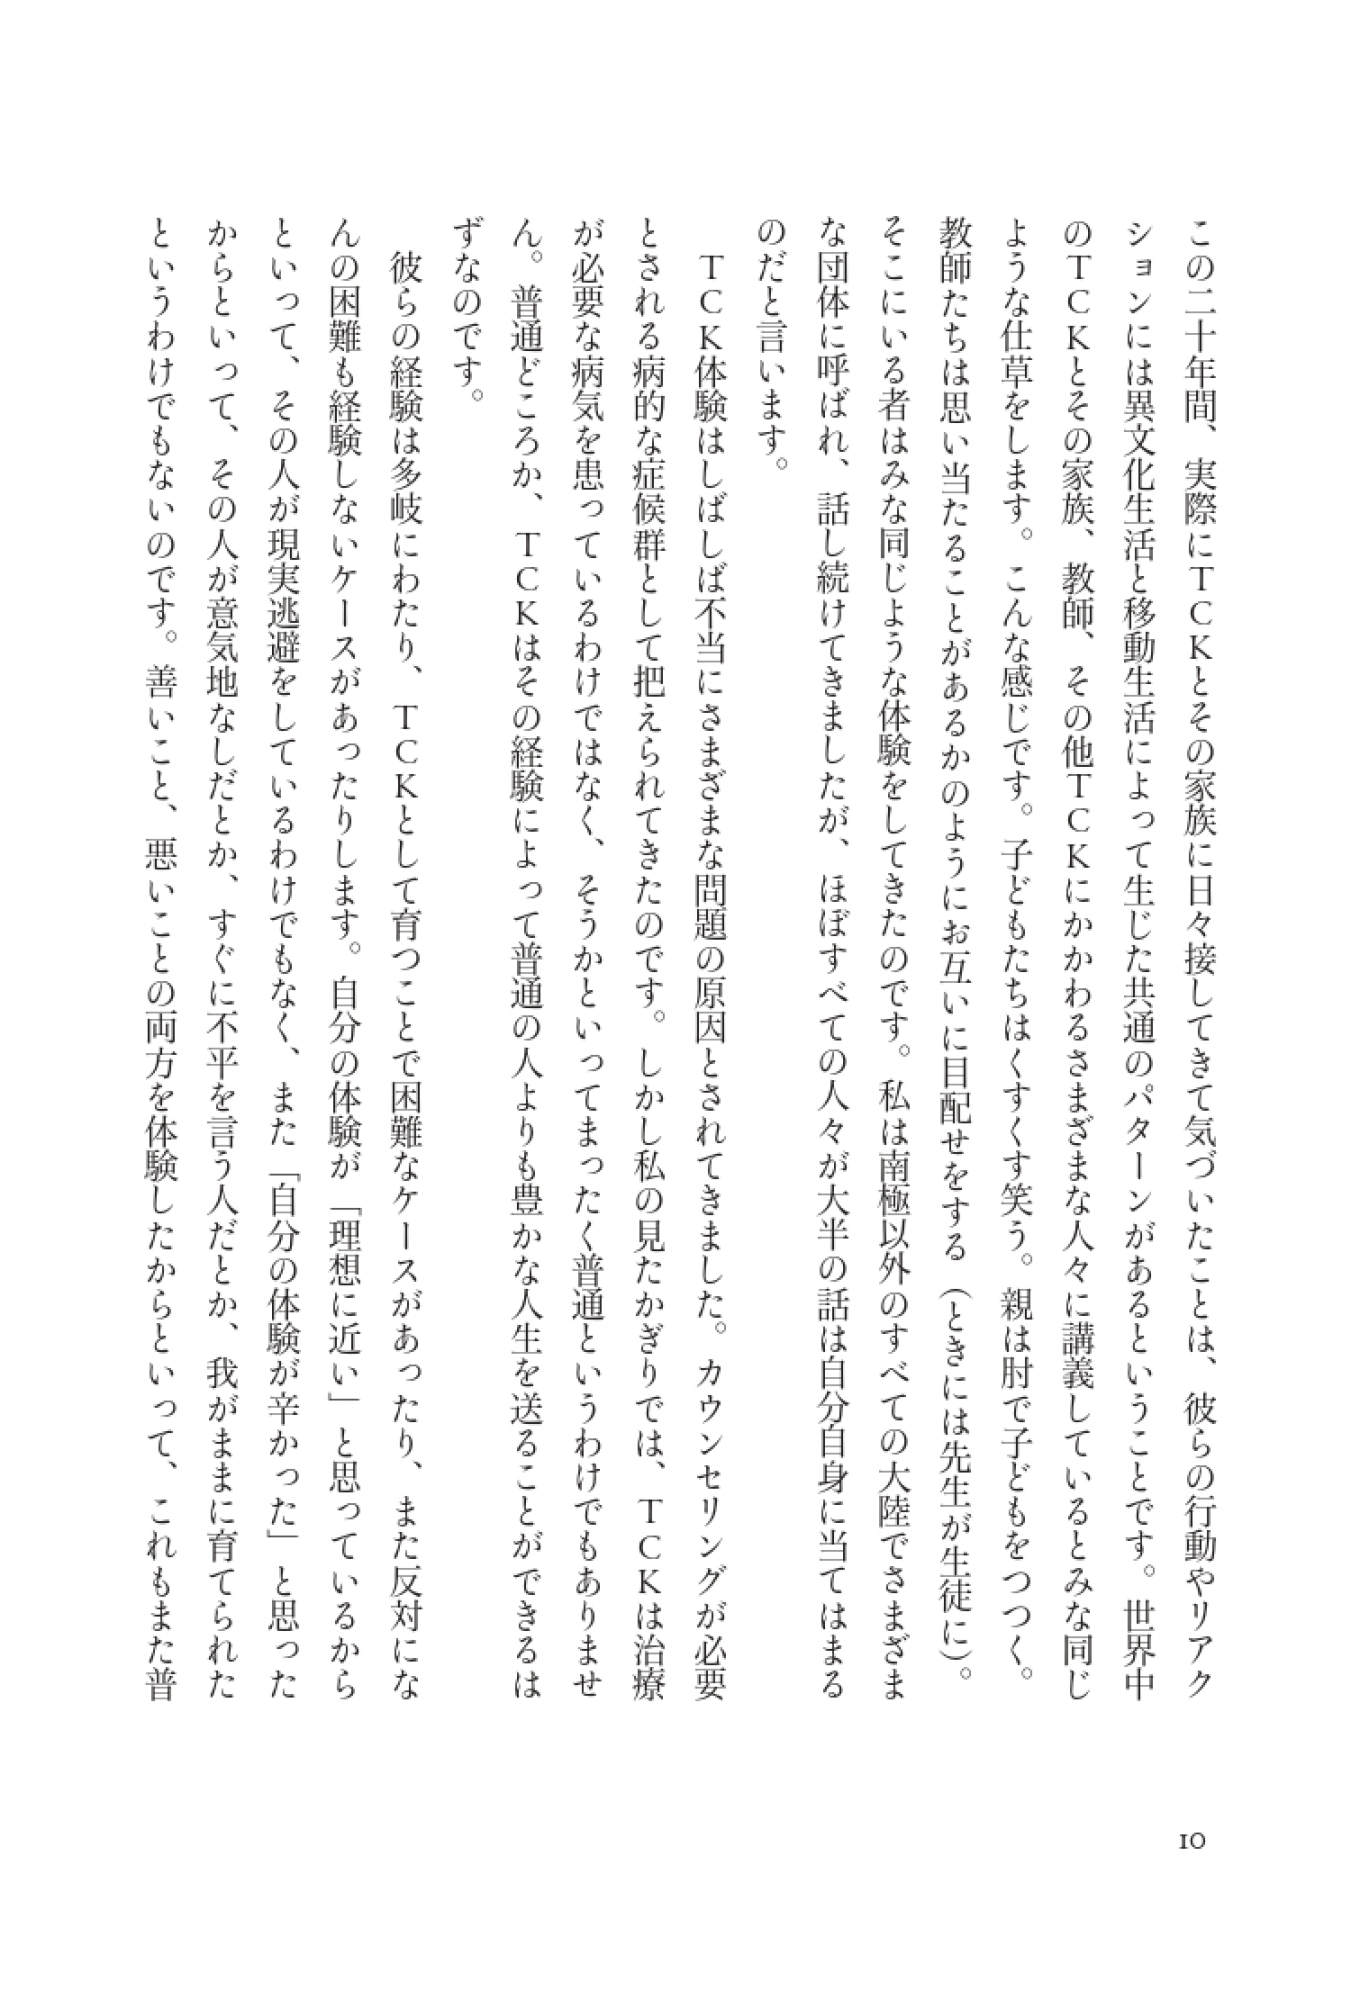 この二十年間、実際にTCKとその家族に日々接してきて気づいたことは、彼らの行動やリアク
ションには異文化生活と移動生活によって生じた共通のパターンがあるということです。世界中
のTCKとその家族、教師、その他TCKにかかわるさまざまな人々に講義しているとみな同じ
ような仕草をします。こんな感じです。子どもたちはくすくす笑う。親は肘で子どもをつつく。
教師たちは思い当たることがあるかのようにお互いに目配せをする（ときには先生が生徒に）。
そこにいる者はみな同じような体験をしてきたのです。私は南極以外のすべての大陸でさまざま
な団体に呼ばれ、話し続けてきましたが、ほぼすべての人々が大半の話は自分自身に当てはまる
のだと言います。
　TCK体験はしばしば不当にさまざまな問題の原因とされてきました。カウンセリングが必要
とされる病的な症候群として把えられてきたのです。しかし私の見たかぎりでは、TCKは治療
が必要な病気を患っているわけではなく、そうかといってまったく普通というわけでもありませ
ん。普通どころか、TCKはその経験によって普通の人よりも豊かな人生を送ることができるは
ずなのです。
　彼らの経験は多岐にわたり、TCKとして育つことで困難なケースがあったり、また反対にな
んの困難も経験しないケースがあったりします。自分の体験が「理想に近い」と思っているから
といって、その人が現実逃避をしているわけでもなく、また「自分の体験が辛かった」と思った
からといって、その人が意気地なしだとか、すぐに不平を言う人だとか、我がままに育てられた
というわけでもないのです。善いこと、悪いことの両方を体験したからといって、これもまた普
10